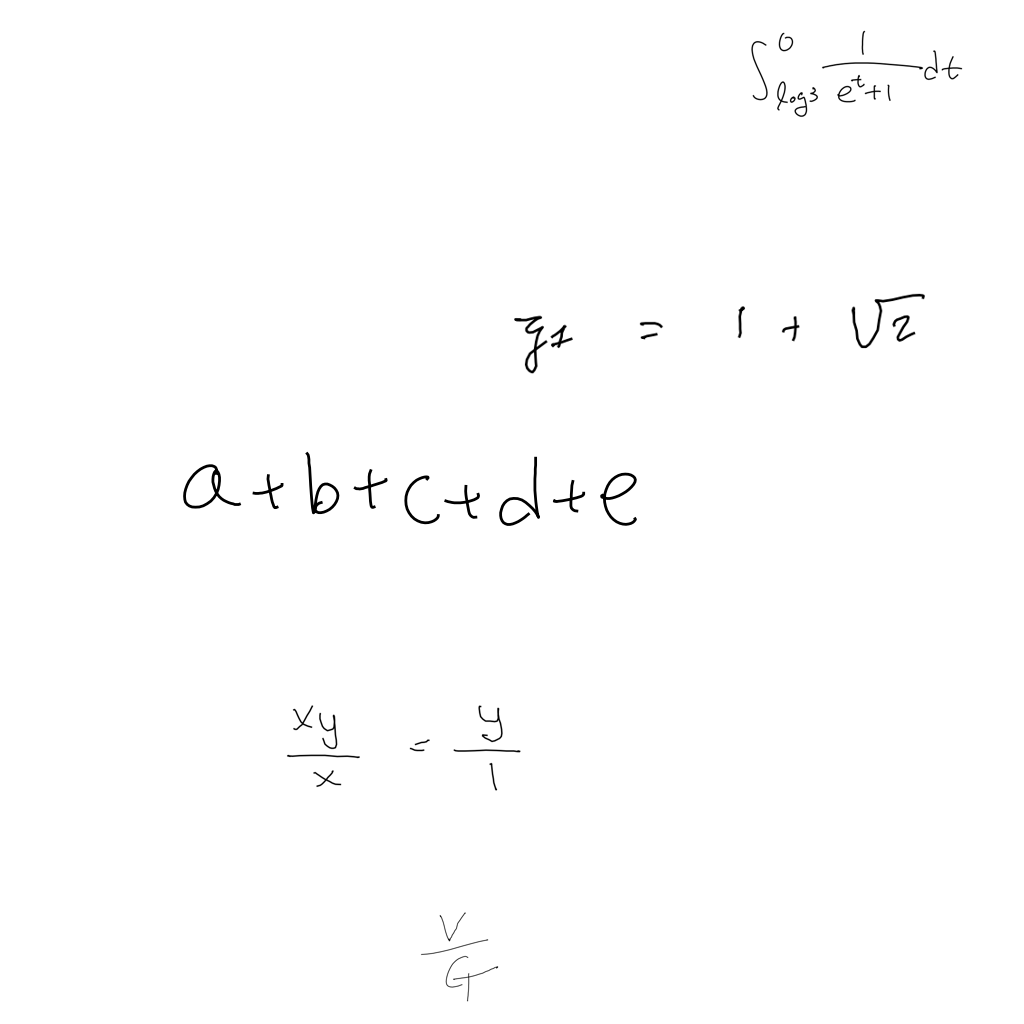 ∫_{log3}^{0} \frac{1}{e^t+1} dt
z_1 = 1 + √2
a+b+c+d+e
\frac{xy}{x} = \frac{y}{1}
\frac{V}{G}